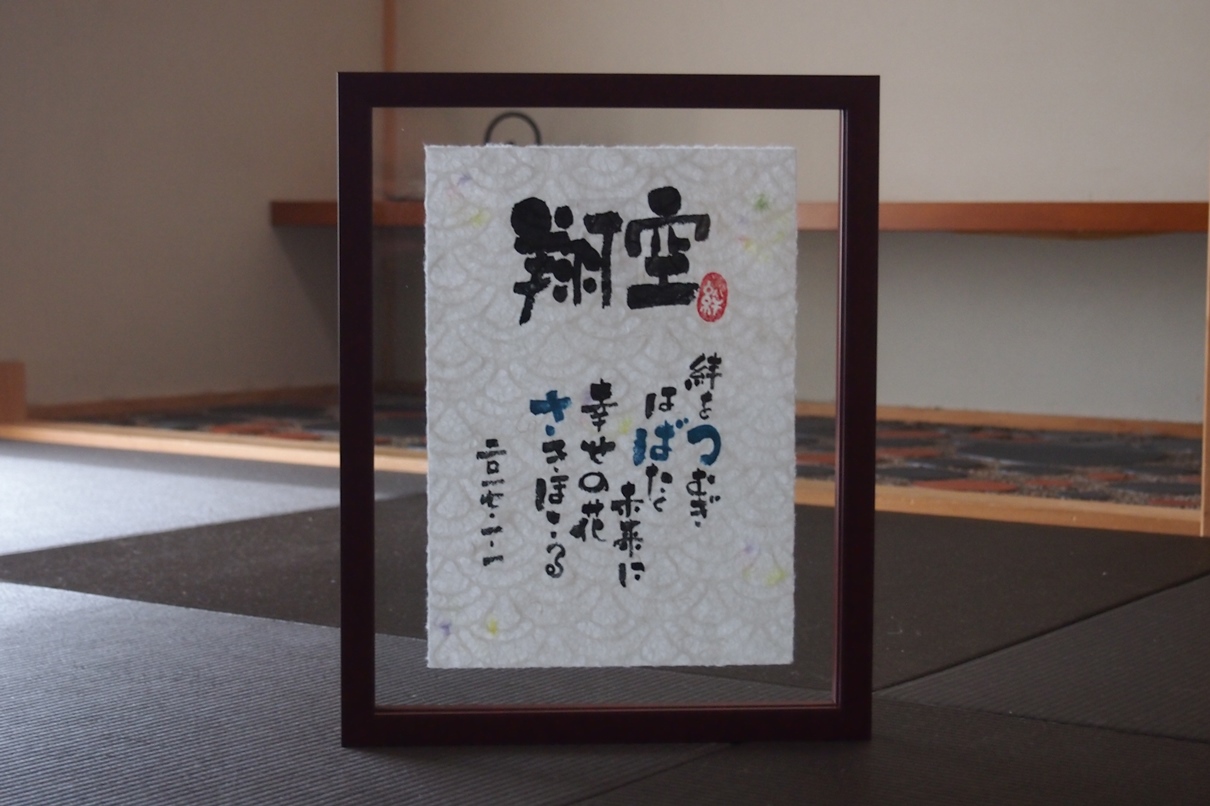 翔空
絆をつむぎ
はばたく
未来に
幸せの花
さきほこる
二〇一七・一・一